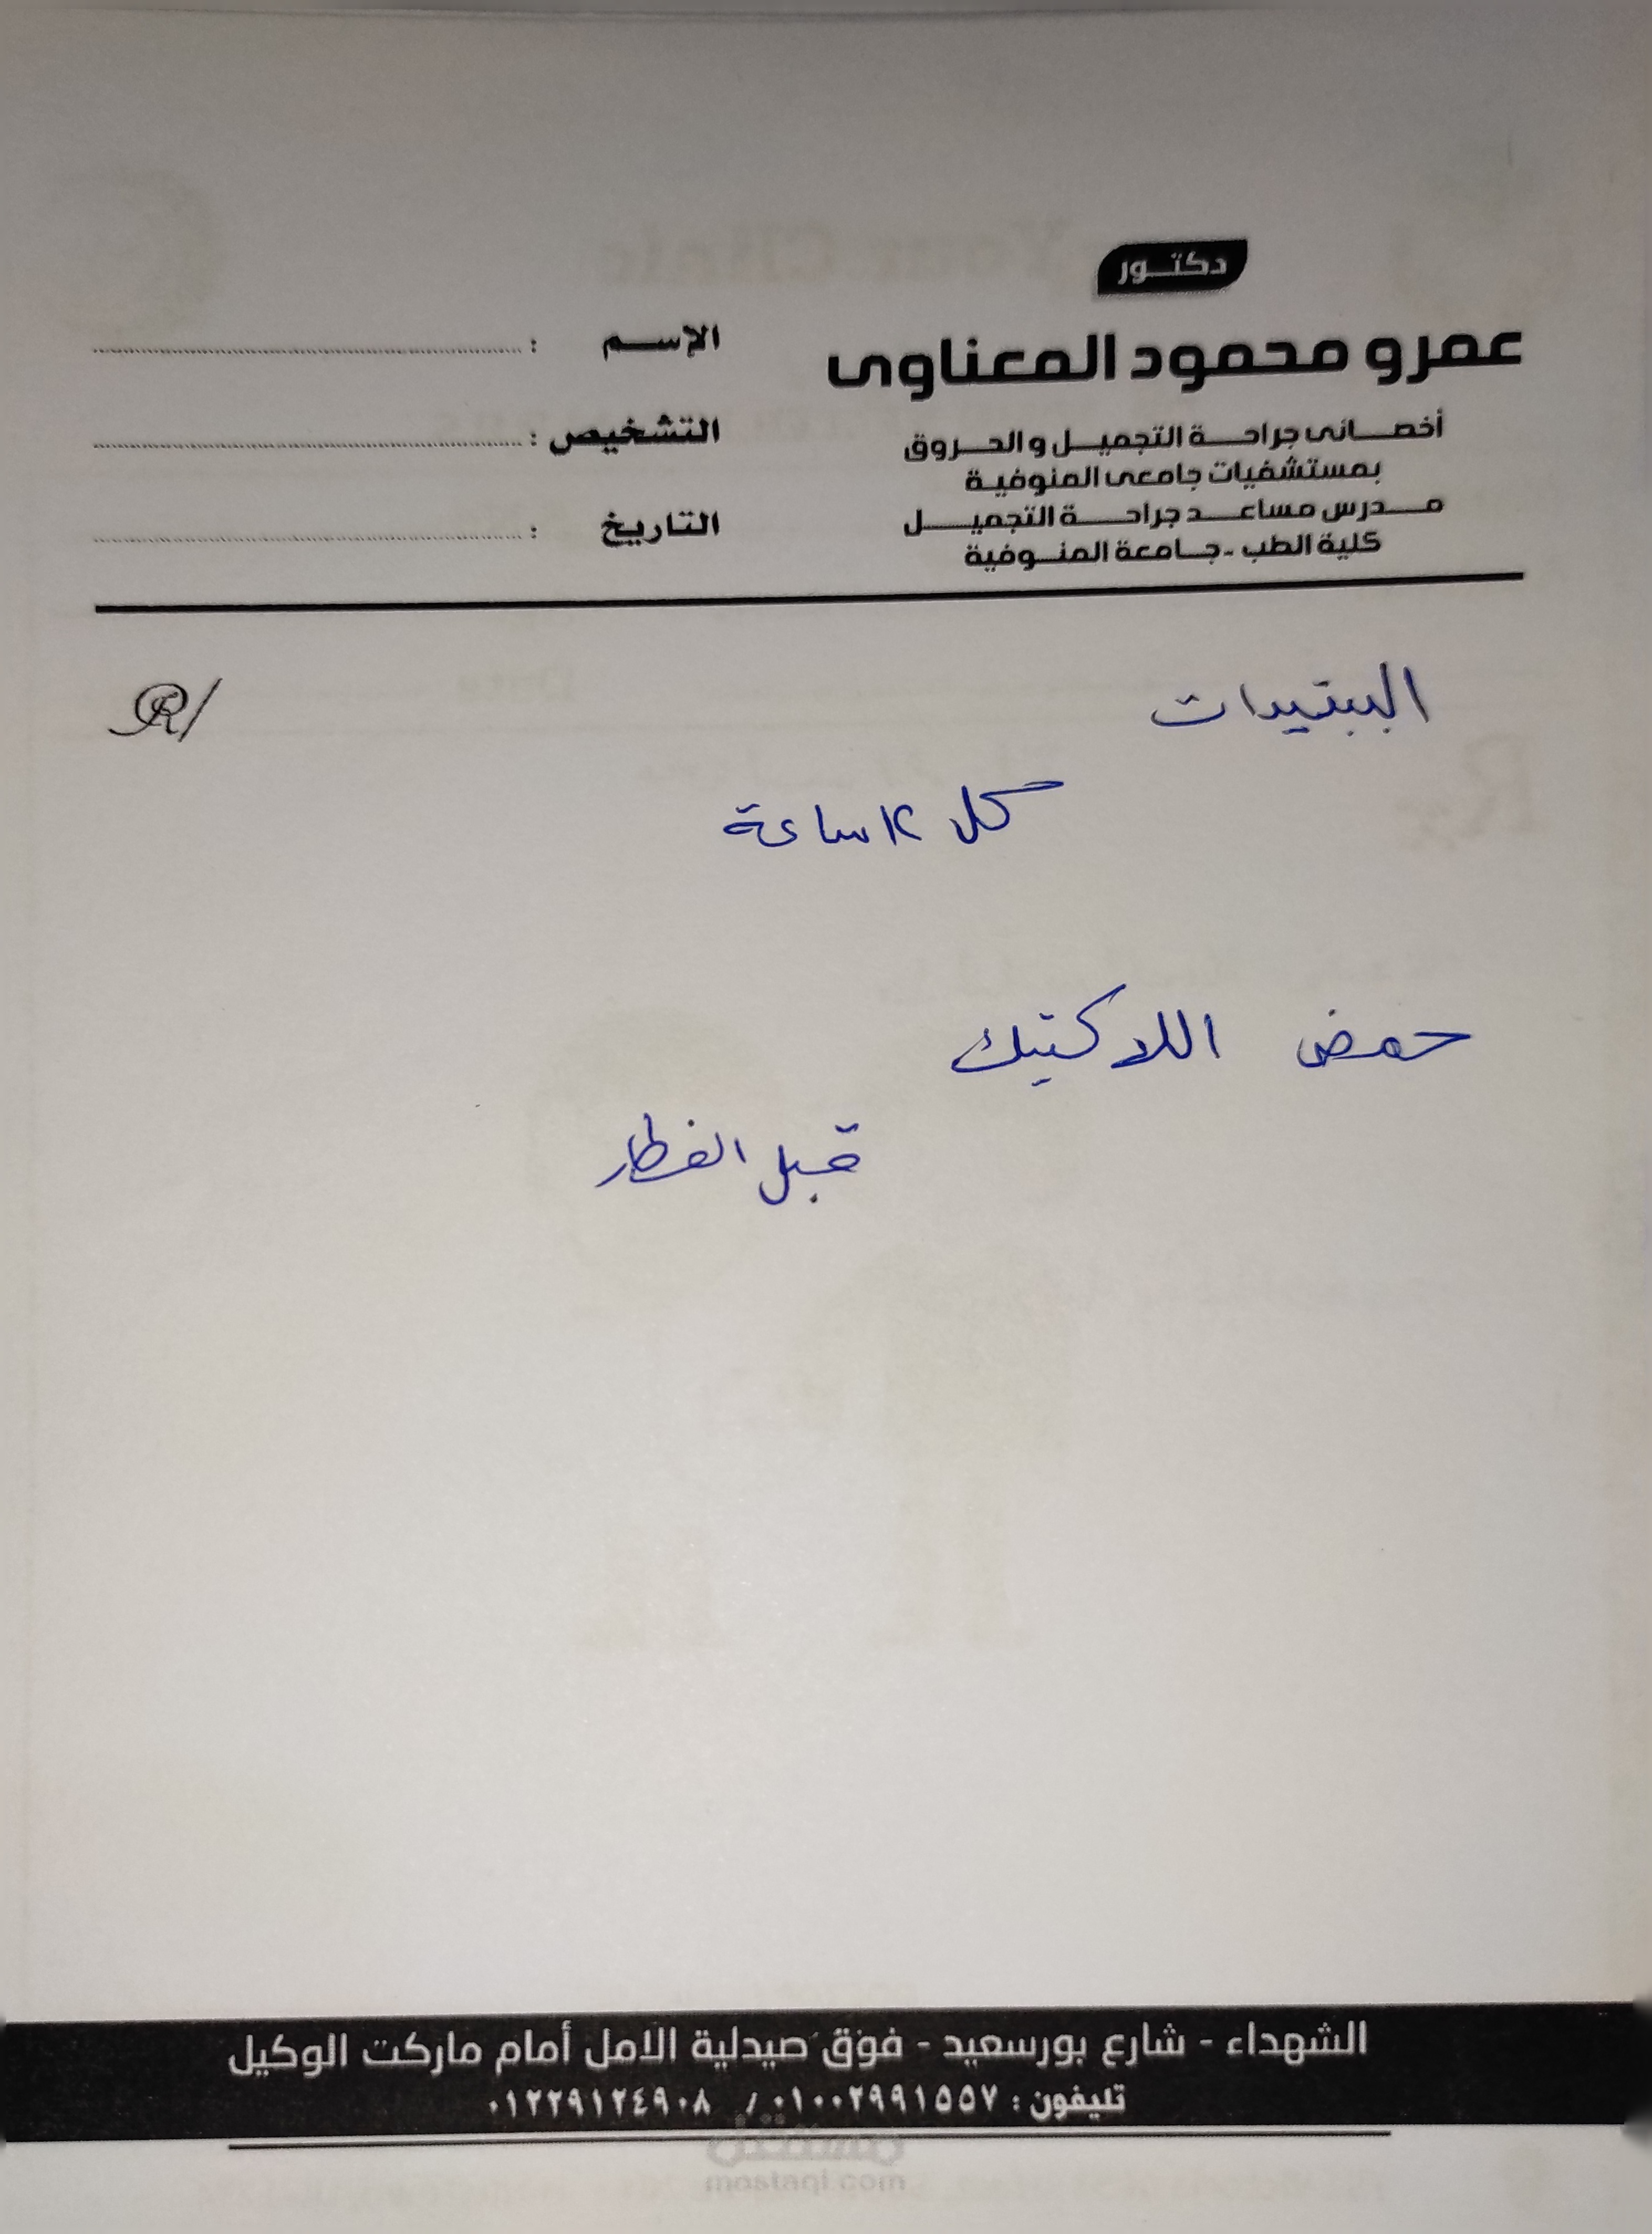 دكتور
عمرو محمود المعناوى
أخصائى جراحة التجميل والحروق
بمستشفيات جامعى المنوفية
مدرس مساعد جراحة التجميل
كلية الطب - جامعة المنوفية
الإسم :
التشخيص :
التاريخ :
R/
الببتيدات
كل ١٢ ساعة
حمض اللاكتيك
قبل الفطار
الشهداء - شارع بورسعيد - فوق صيدلية الامل أمام ماركت الوكيل
تليفون : ٠١٠٠٢٩٩١٥٥٧ / ٠١٢٢٩١٢٤٩٠٨
مستقل
mostaql.com